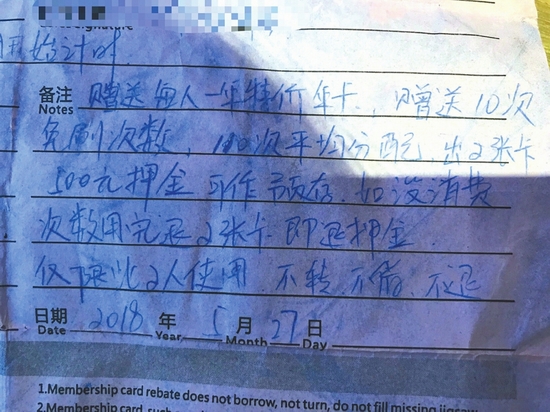 Signature
始计时
备注 赠送每人一年特价年卡、赠送10次
Notes
免刷次数,110次平均分配,出2张卡
500元押金可作预存,如没消费
次数用完退2张卡即退押金.
仅限此2人使用.不转.不借.不退
日期 2018 年 5 月 27 日
Date Year Month Day
1.Membership card rebate does not borrow, not turn, do not fill missing jigsaw
2.Membership card, such